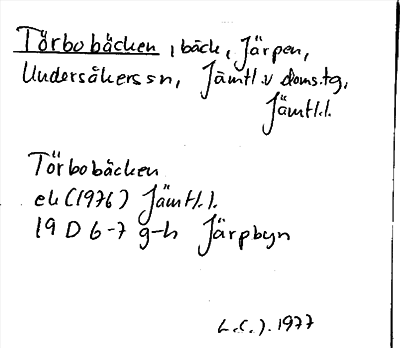 Törbobäcken, bäck, Järpen,
Undersåkers sn, Jämtl. v doms.tg,
Jämtl.l.
Törbobäcken
ek (1976) Jämtl.l.
19 D 6-7 g-h Järpbyn
L.C.J. 1977